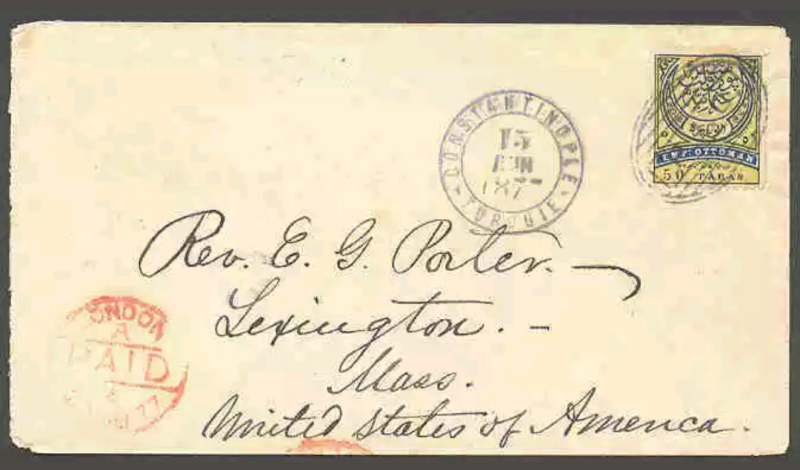 CONSTANTINOPLE
15
187
TURQUIE
EMP: OTTOMAN
50 PARAS
Rev. E. G. Porter.
Lexington.
Mass.
United States of America.
LONDON
A
PAID
77